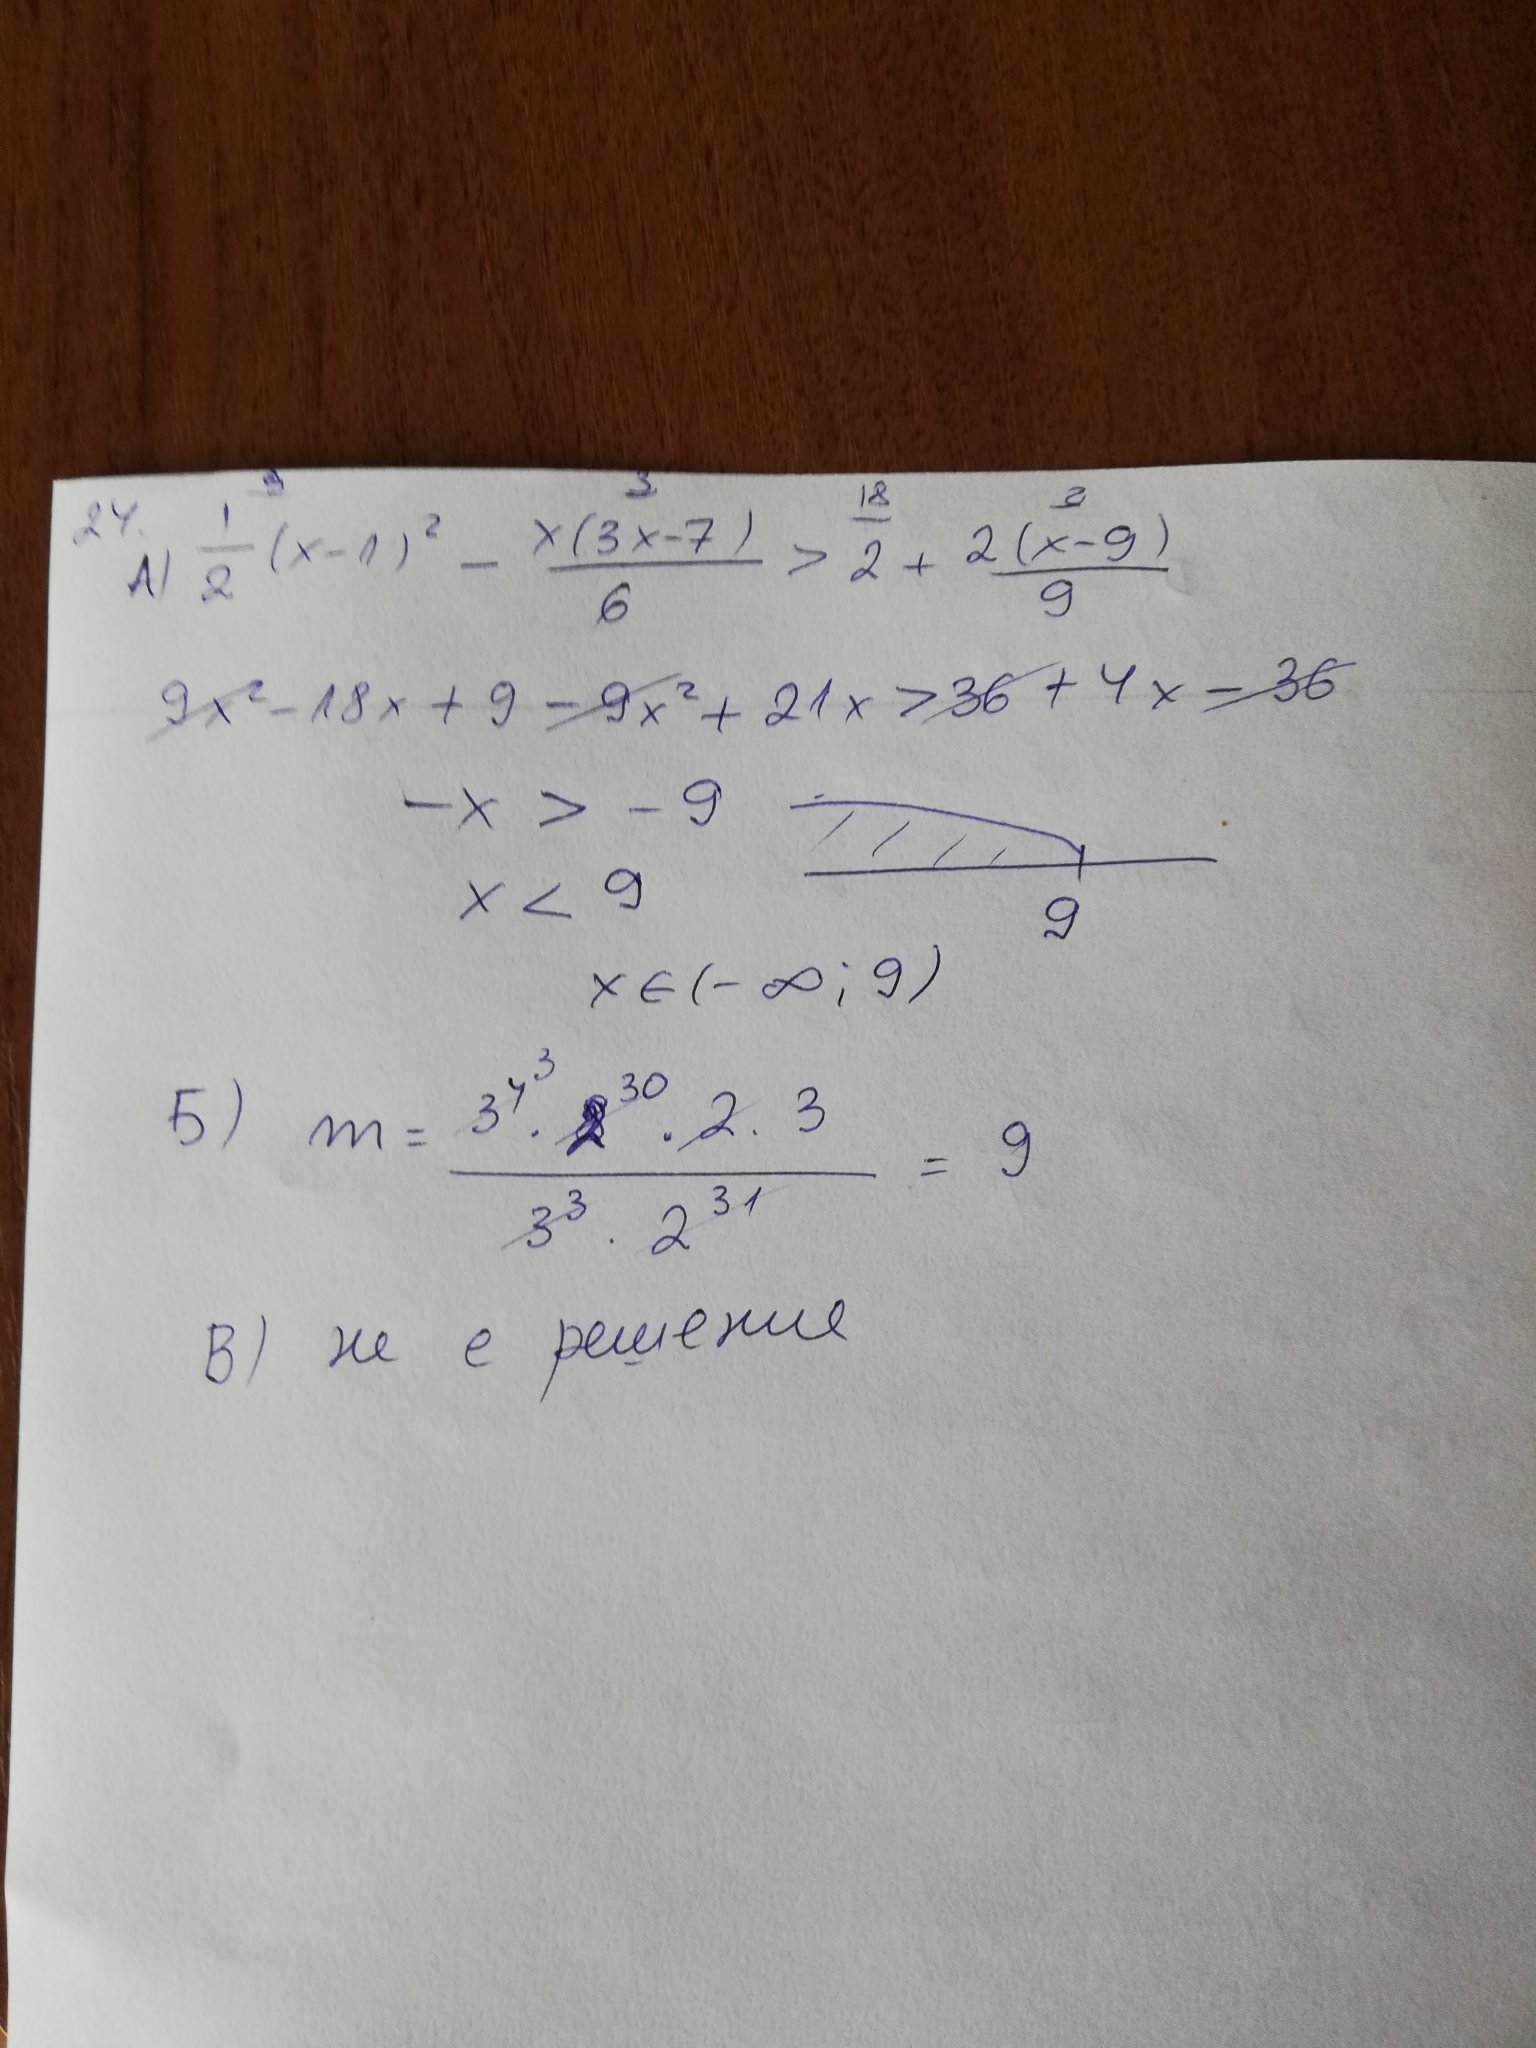 24.
А) 1/2 (x-1)² - x(3x-7)/6 > 2 + 2(x-9)/9
9x² - 18x + 9 - 9x² + 21x > 36 + 4x - 36
-x > -9
x < 9
9
x ∈ (-∞; 9)
Б) m = 3⁴ ³ · 2³⁰ · 2 · 3 / 3³ · 2³¹ = 9
В) не е решение